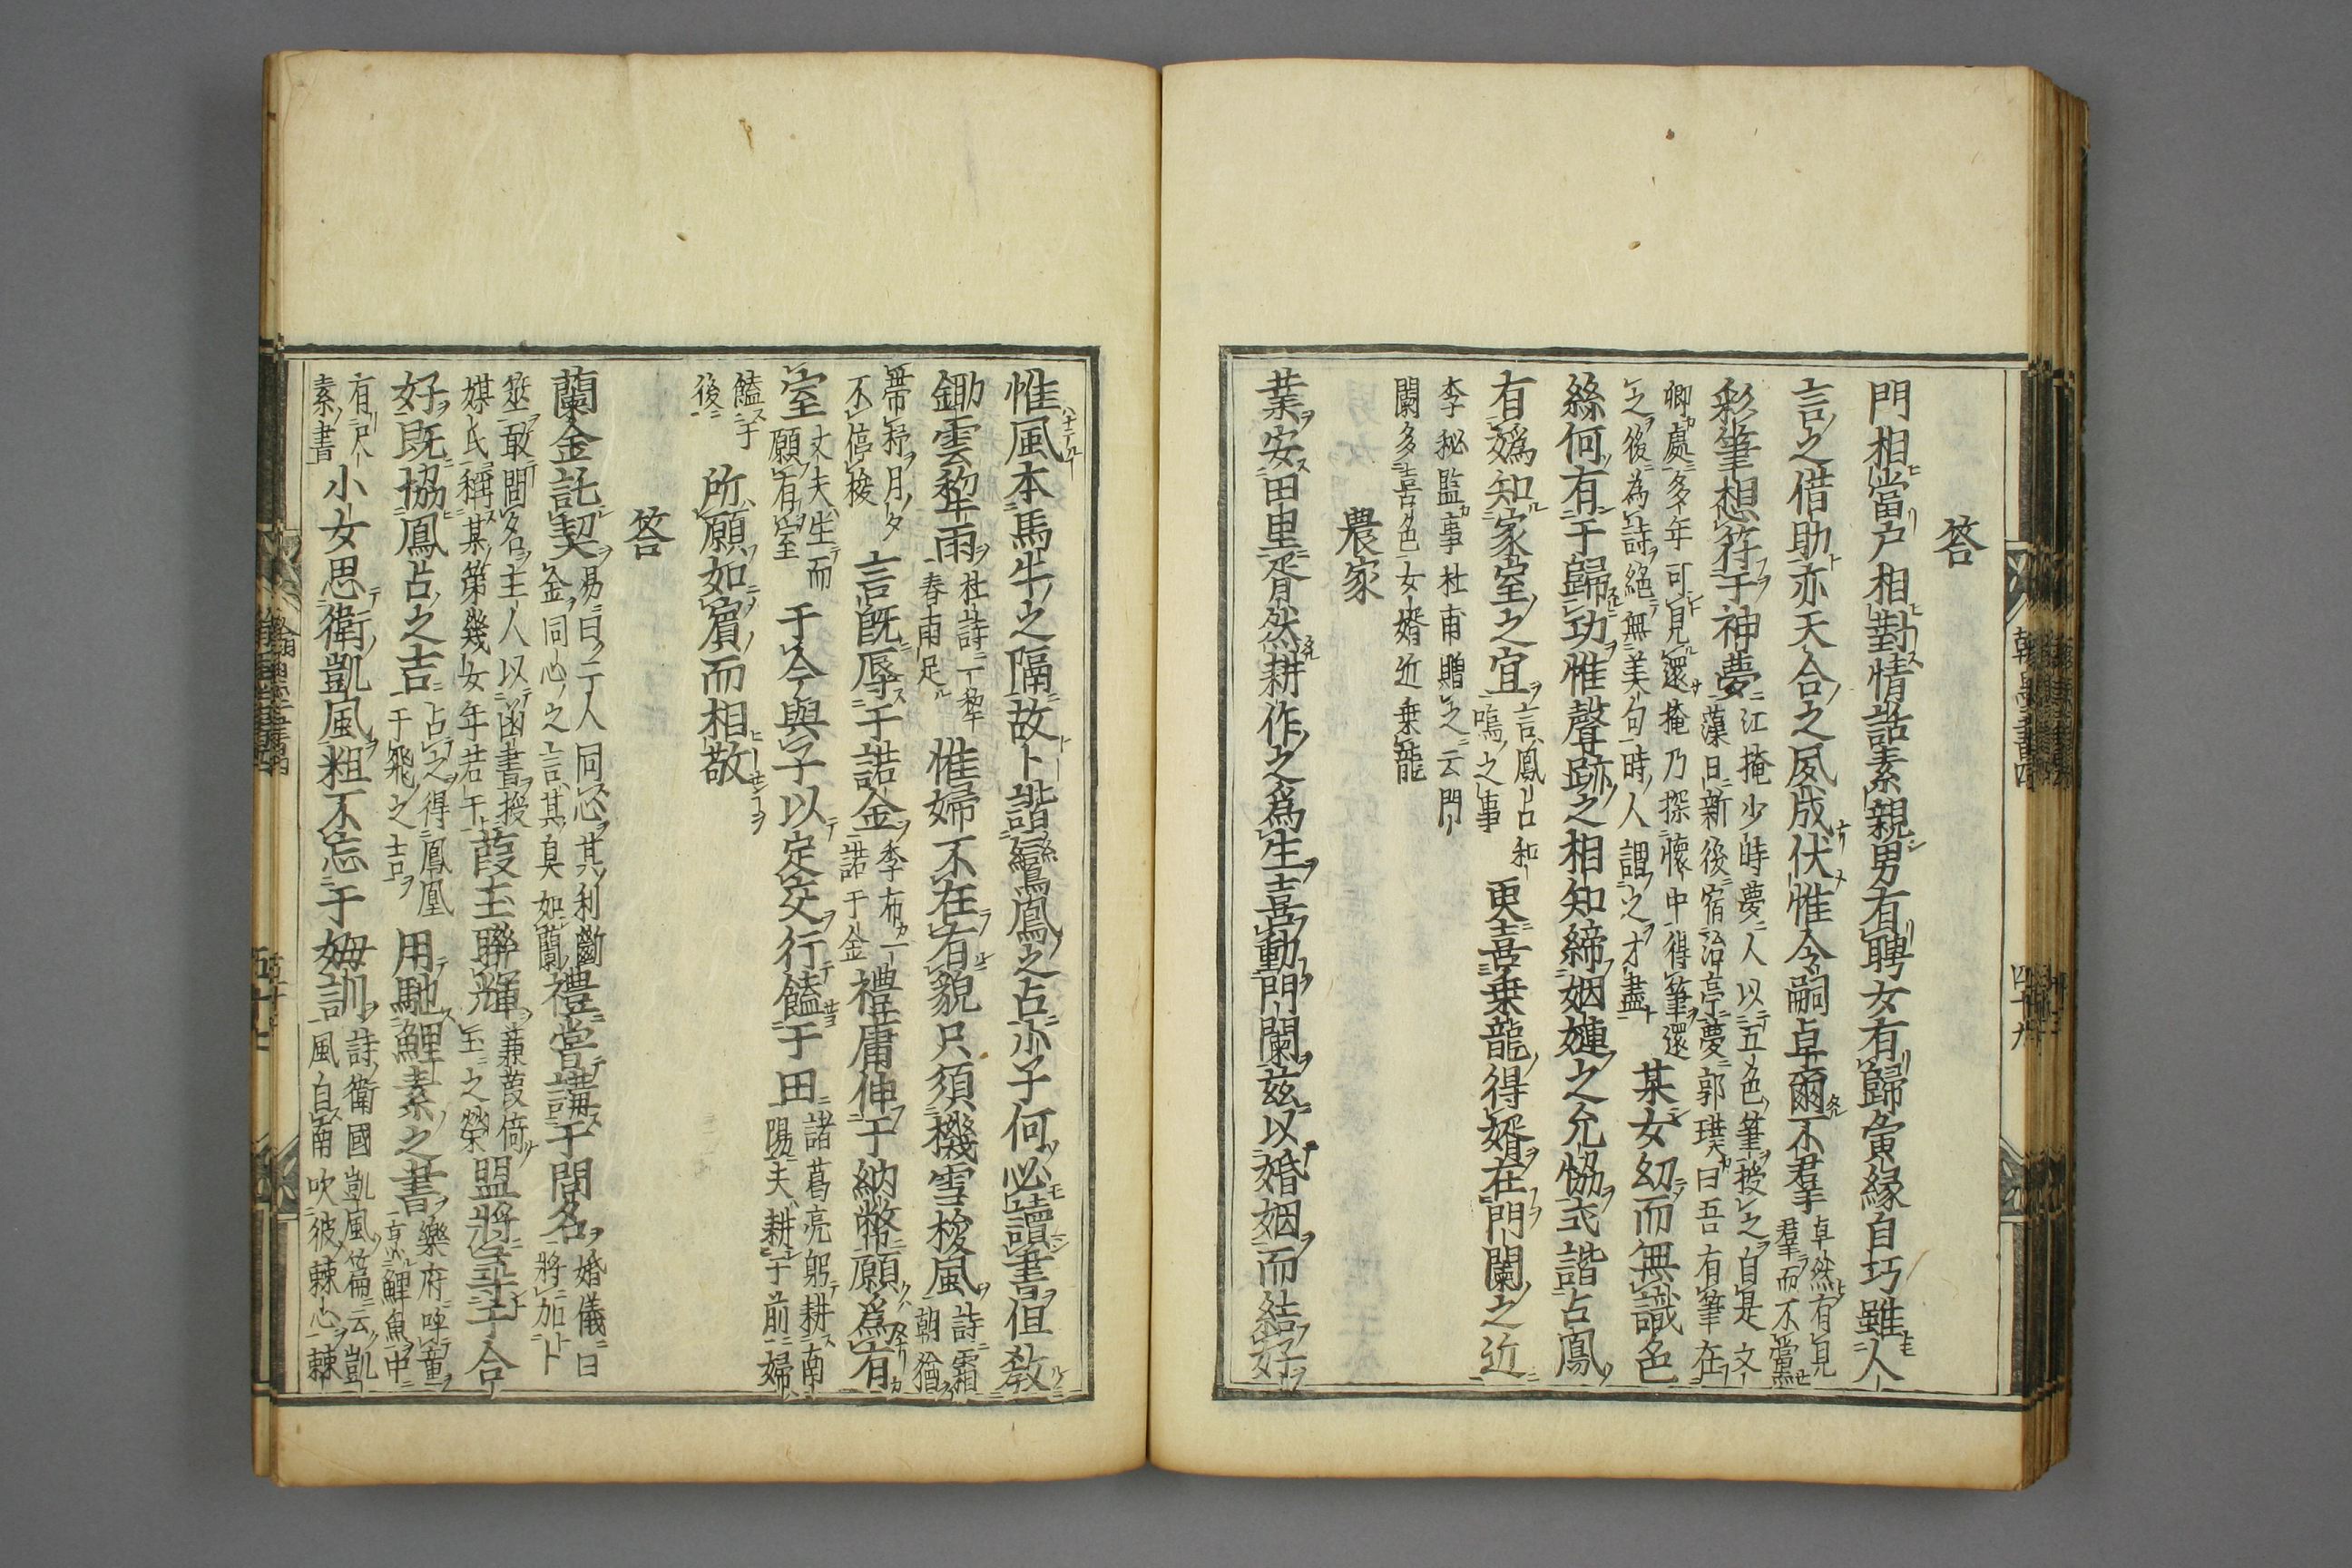 答
門相當户相對情話素親男有聘女有歸夤縁自巧雖人
言之借助亦天合之夙成伏惟令嗣卓爾不羣卓然有見羣而不黨
彩筆想符于神夢江掩少時夢人以五色筆授之自是文藻日新後宿治亭夢郭璞曰吾有筆在
卿處多年可見還掩乃探懷中得筆還之後為詩絕無美句時人謂之才盡某女幼而無識色
絲何有于歸功惟聲跡之相知締姻嫌之允恊式諧占鳳
有媯知家室之宜言鳳占和嗚之事更喜乗龍得婿在門闌之近
李秘監事杜甫贈之云門闌多喜色女婿近乗龍
農家
業安田里胥然耕作之爲生喜動門闌兹以婚姻而結好
惟風本馬牛之隔故卜諧鸞鳳之占亦子何必讀書但敎
鋤雲犂雨杜詩一犂春雨足惟婦不在有貌只須機雪梭風詩霜朝猶
帶月夕不停梭言旣辱于諾金季布一諾于金禮庸伸于納幣願爲有
室丈夫生而願有室于今與子以定交行饁于田諸葛亮躬耕南陽夫耕于前婦
饁于後所願如賓而相敬
答
蘭金託契易曰二人同心其利斷金同心之言其臭如蘭禮當講于問名婚儀曰將加卜
筮敢問名主人以函書授媒氏稱某第幾女年若干葭玉聯輝蒹葭倚玉之榮盟將尋于合
好既協鳳占之吉占之得鳳凰于飛之吉用馳鯉素之書樂府呼童烹鯉魚中
有尺素書小女思衛凱風粗不忘于姆訓詩衛國凱風篇云凱風自南吹彼棘心棘